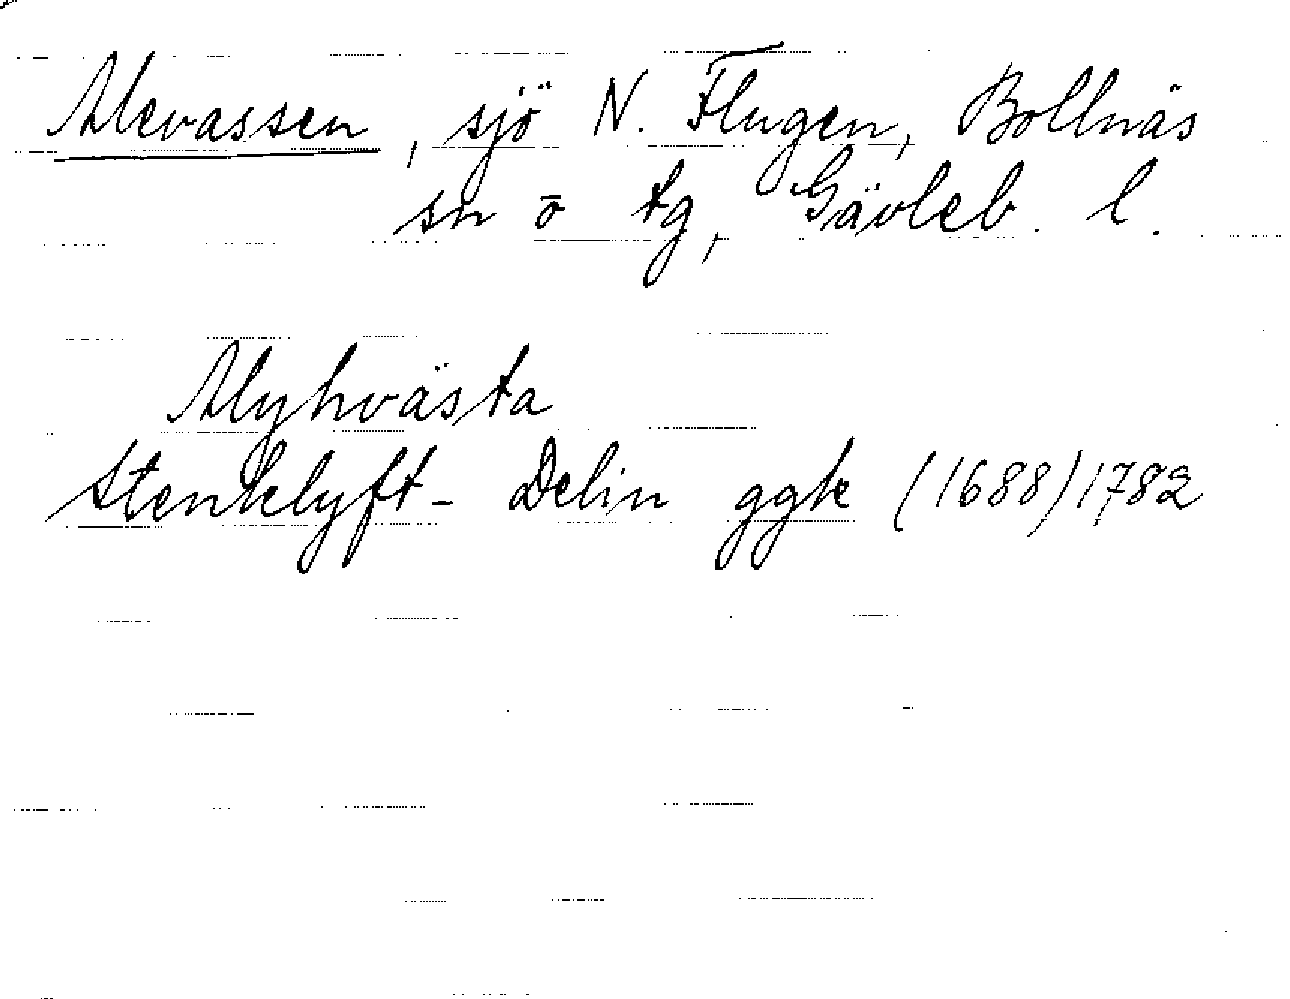 Alevassen, sjö N. Flugen, Bollnäs
sn o tg, Gävleb. l.
Alyhvästa
Stenklyft- Delin ggk (1688) 1782